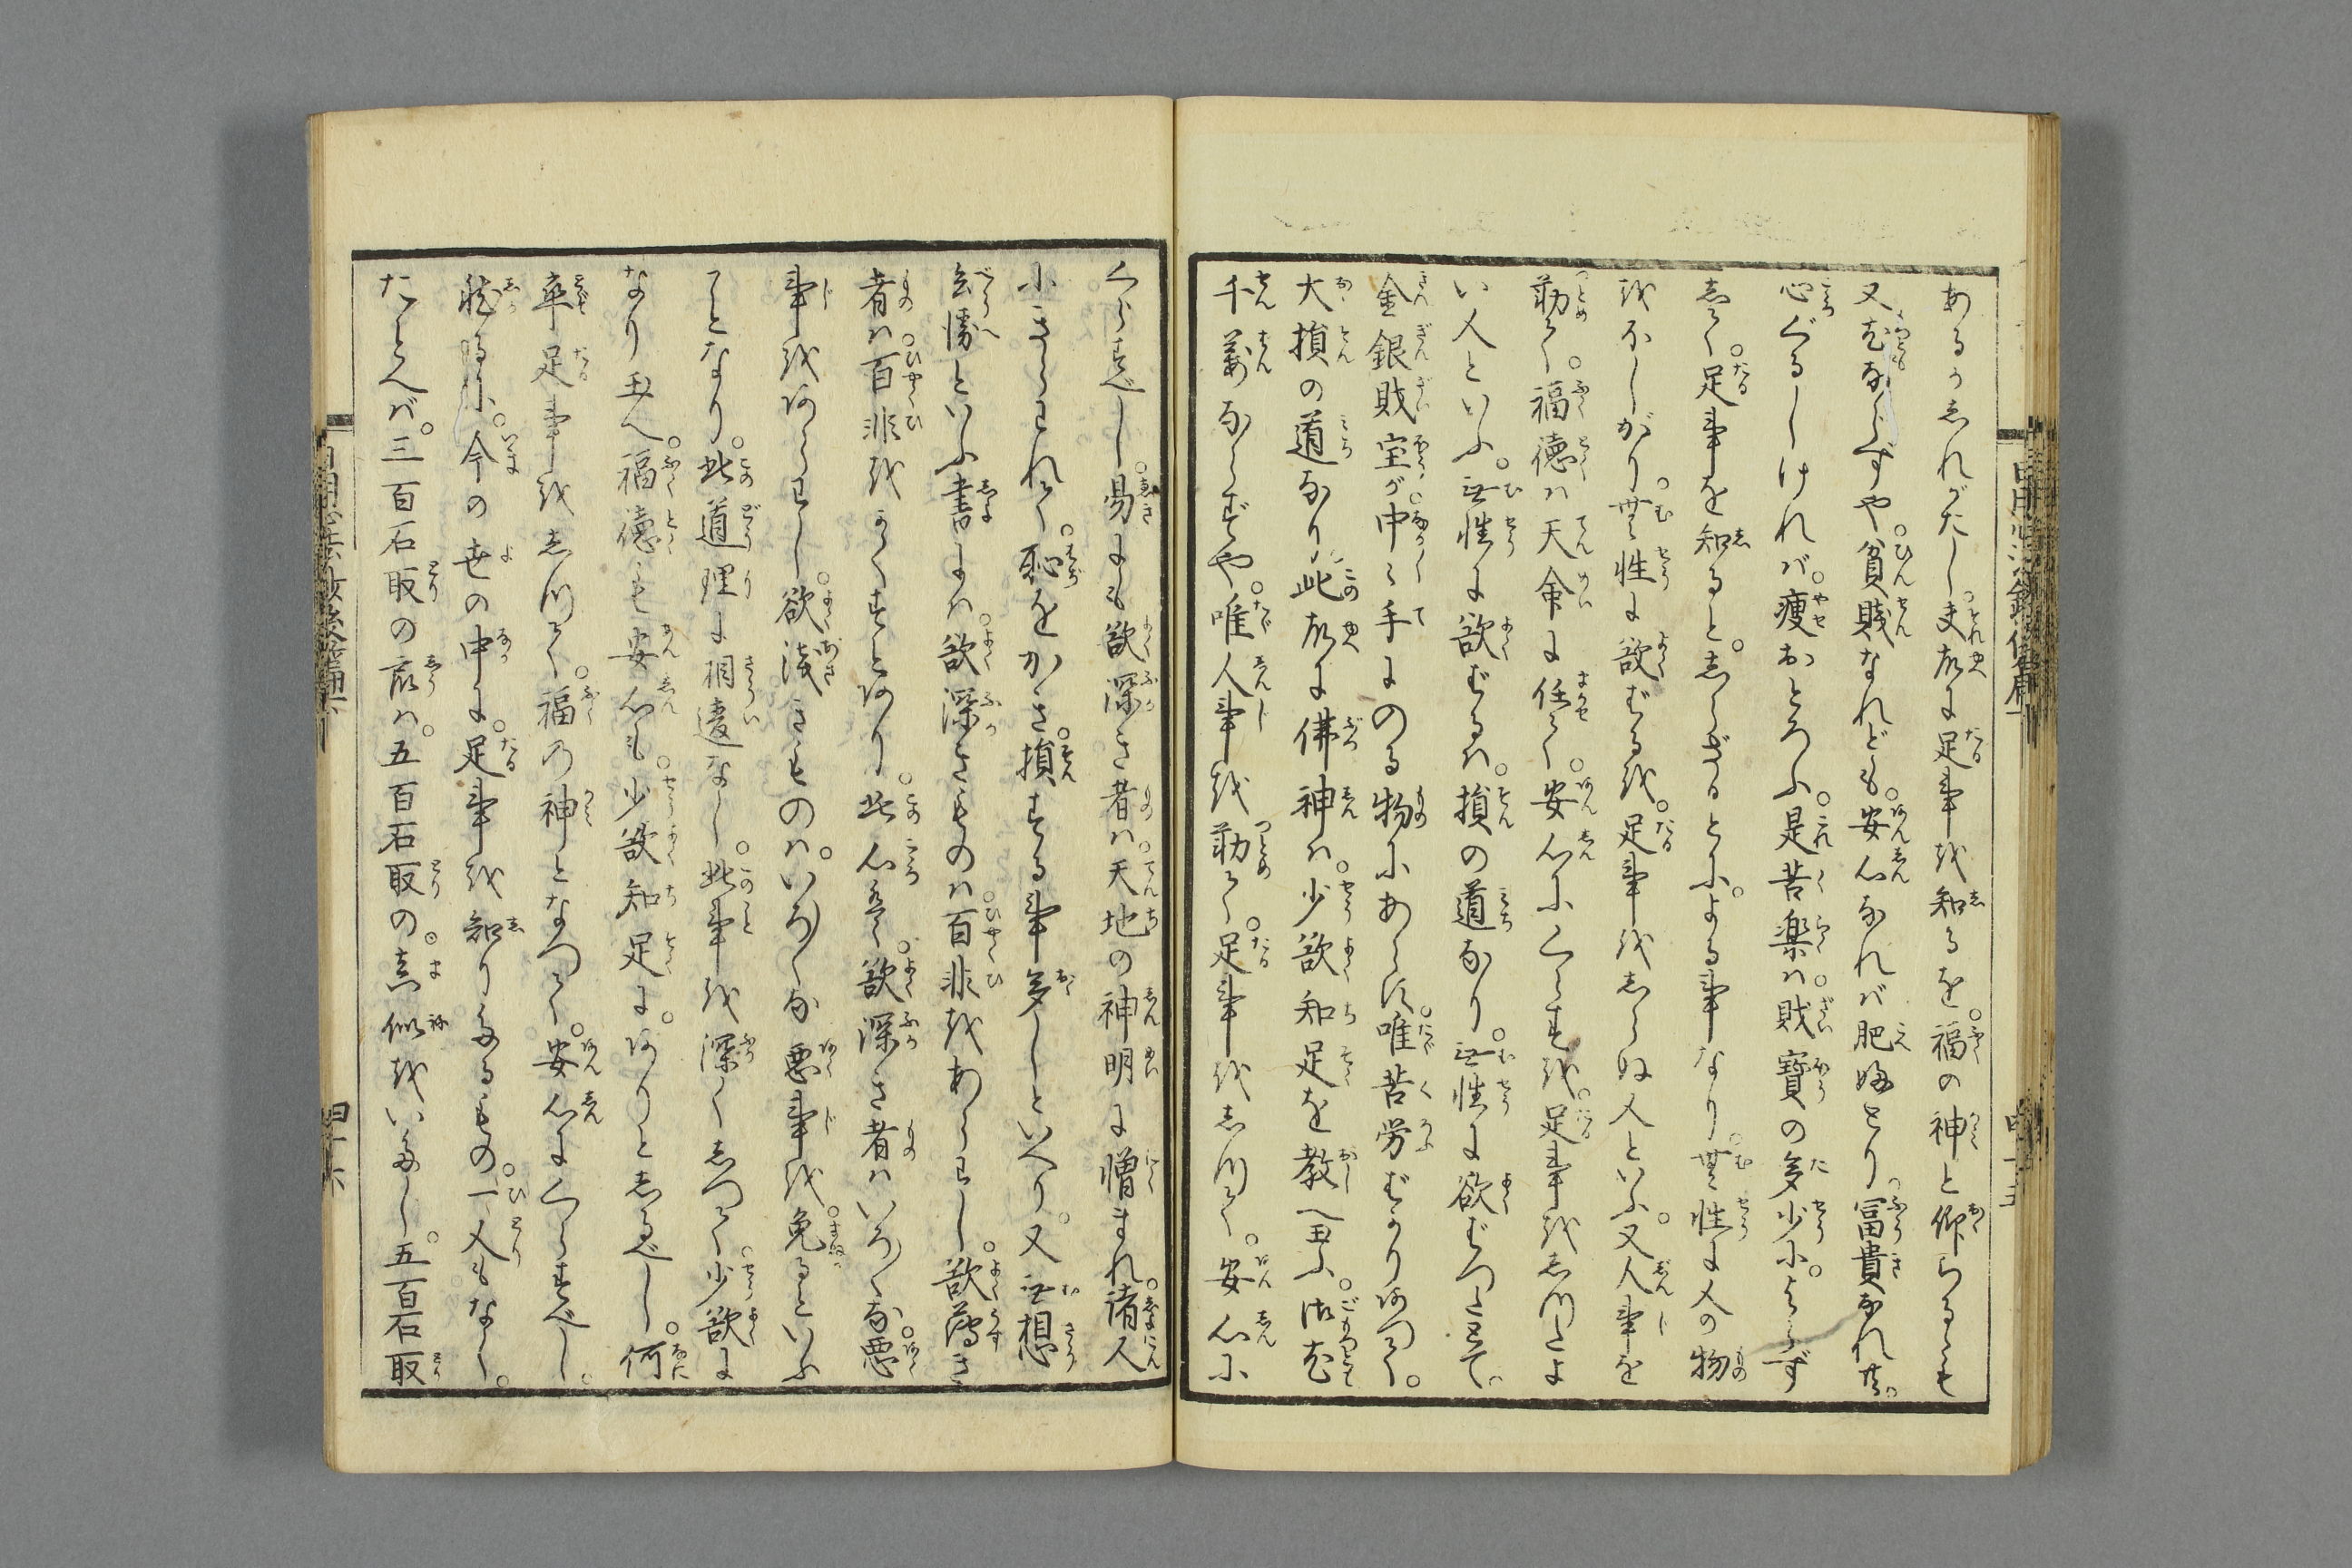 あるゝゑれがたし。夫故に足事を知るを。福の神と仰らるゝも
又尤ならずや。貧賤なれども。安心なれバ肥ゆとり。冨貴なれ共。
心ぐるしけれバ。痩おとろふ。是苦楽ハ財寶の多少に。よらず
して。足事を知ると。しらざるとに。よる事なり。無性に人の物
をほしがり。無性に欲ばるを。足事をしらぬ人といふ。又人事を
勤て。福徳ハ天命に任て。安心にくらすを。足事をしつたよ
い人といふ。無性に欲ばるハ。損の道なり。無性に欲ばつたとて。
金銀財宝が。中々手にのる物にあらず。唯苦労ばかりあつて。
大損の道なり。此故に佛神ハ。少欲知足を教へ玉ふ。御尤
千萬ならずや。唯人事を勤て。足事をしつて。安心に
くらすべし。易にも欲深き者ハ。天地の神明に憎まれ。諸人
にきらわれて。恥をかき。損する事多しといへり。又無想
玄懐といふ書にハ。欲深きものハ。百非をあらわし。欲薄き
者ハ。百非をかくすとあり。此心ハ。欲深き者ハいろ〱な。悪
事をあらわし。欲浅きものハ。いろ〱な悪事を。免るといふ
ことなり。此道理に相違なし。此事を深くしつて。少欲に
なり玉へ。福徳も安心も。少欲知足に。ありとしるべし。何
卒足事をしつて。福の神となつて。安心にくらすべし。
然るに。今の世の中に。足事を知りたるもの。一人もなく。
たとへバ。三百石取の家ハ。五百石取の。真似をいたし。五百石取
四十六